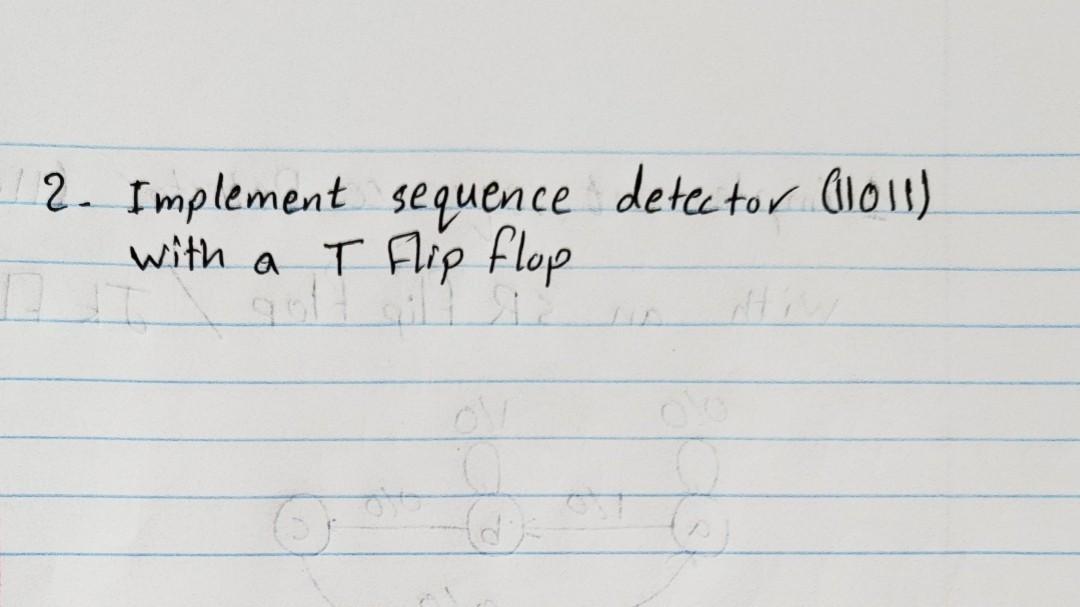 2. Implement sequence detector (11011)
with a T Flip flop